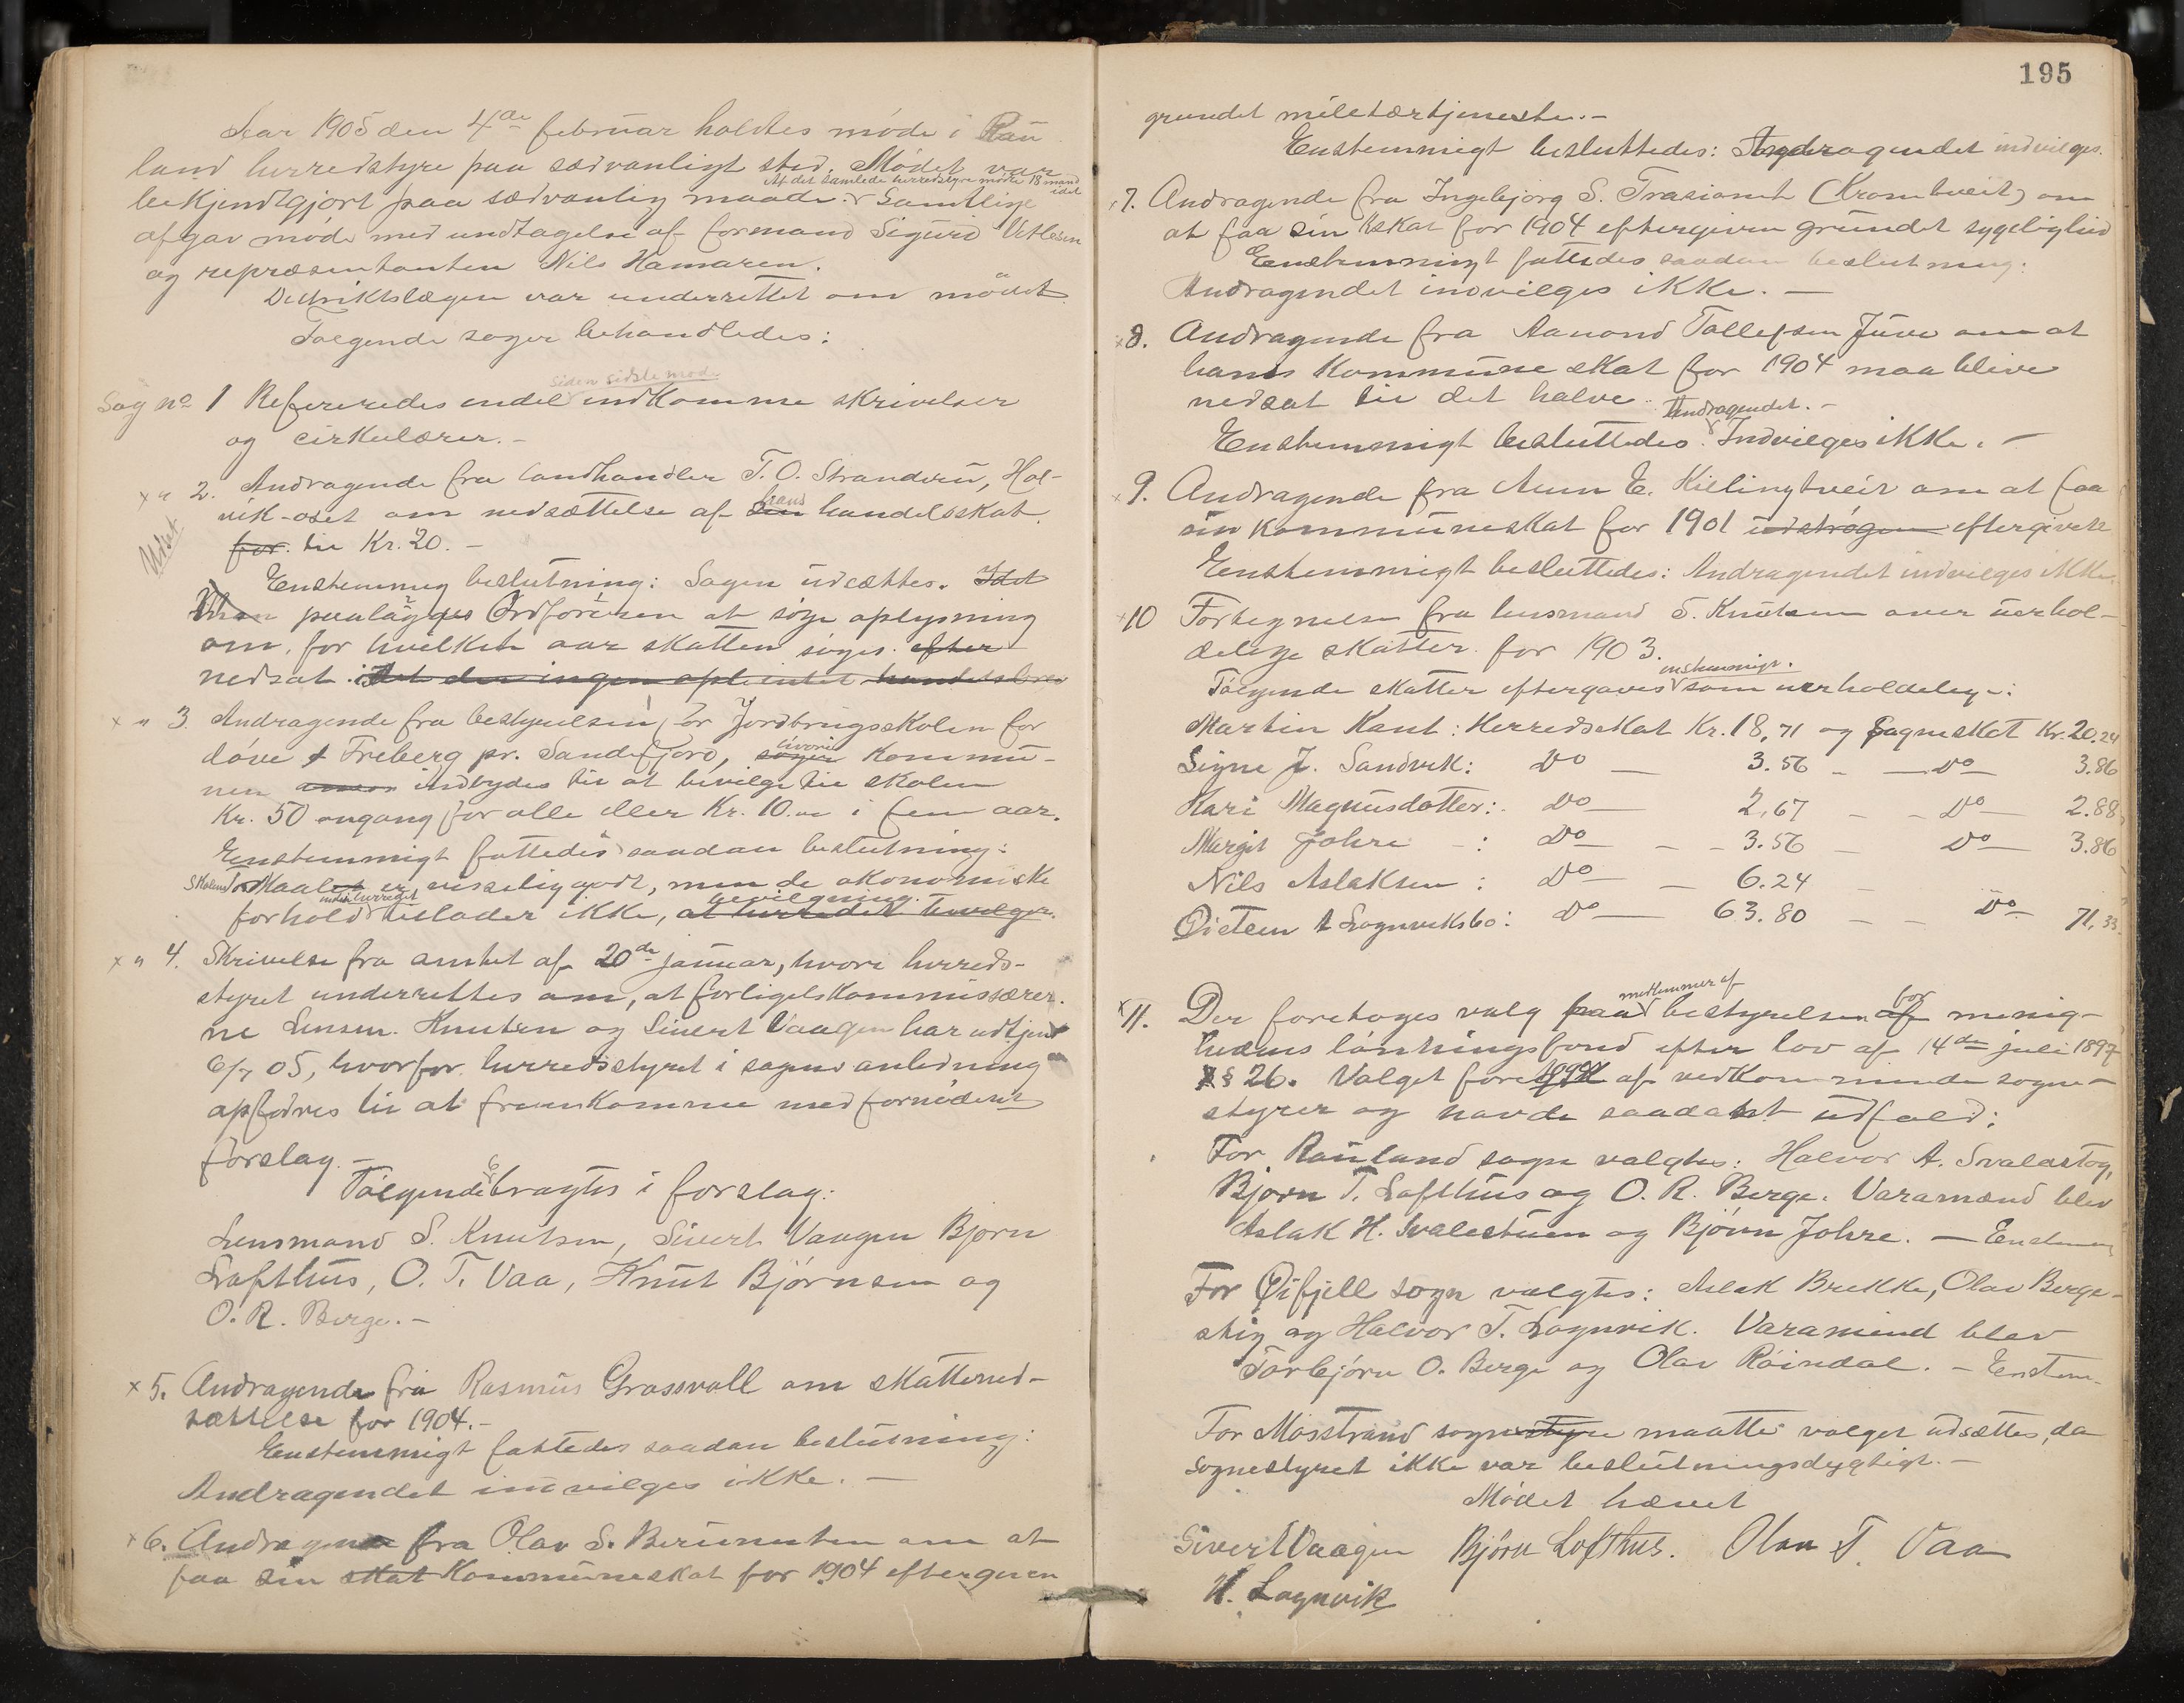 Aar 1905 den 4de februar holdtes møde i Rau
land herredstyre paa sædvanligt sted. Mødet var
Af det samlede herredstyre mødte 18 mand idet
bekjendtgjort paa sædvanlig maade. Samtlige
afgav møde med undtagelse af formand Sigurd Vetlesen
og repræsentanten Nils Hamaren.
Distriktslægen var underrettet om mødet.
Følgende sager behandledes:
siden sidste møde
Sag no 1 Refereredes endel indkomne skrivelser
og cirkulærer.-
x " 2. Andragende fra landhandler T. O. Stranderu, Hol-
vik-oset om nedsættelse af sin hans handelsskat
Udsat
for til Kr. 20.-
Enstemmig beslutning: Sagen udsættes. Idet
paalægges Ordføreren at søge oplysning
om, for hvilket aar skatten søges efter
nedsat.
x " 3. Andragende fra bestyrelsen for Jordbrugsskolen for
døve Freberg pr. Sandefjord, søger hvori kommu-
nen indbydes til at bevilge til skolen
Kr. 50 engang for alle eller Kr. 10.00 i fem aar.
Enstemmigt fattedes saadan beslutning:
Skolens formaal er visselig godt, men de økonomiske
inden herredet bevilgning.
forhold tilslader ikke, at herredet bevilger.
x " 4. Skrivelse fra amtet af 20de januar, hvori herreds-
styret underrettes om, at forligelskommissærer-
ne Lensm. Knutsen og Sivert Vaagen har udtjent
6/7 05, hvorfor herredsstyret i sagens anledning
opfodres til at fremkomme med fornødent
forslag.-
Følgende 6 bragtes i forslag:
Lensmand S. Knutsen, Sivert Vaagen Bjørn
Lofthus, O. T. Vaa, Knut Bjørnsen og
O. R. Berge.-
x 5. Andragende fra Rasmus Grossvoll om skattened-
sættelse for 1904.-
Enstemmigt fattedes saadan beslutning:
Andragendet indvilges ikke.-
x 6. Andragende fra Olav S. om at
faa sin skat Kommuneskat for 1904 eftergiven
195
grundet militærtjeneste.-
Enstemmigt besluttedes: Andragendet indvilges.
x 7. Andragende fra Ingebjorg S. (Kromtveit) om
at faa sin skat for 1904 eftergiven grundet sygelighed
Eenstemmigt fattedes saadan beslutning:
Andragendet indvilges ikke.-
x 8. Andragende fra Aanond Tollefsen Juve om at
hans Kommuneskat for 1904 maa blive
nedsat til det halve.
Andragendet.-
Enstemmigt besluttedes Indvilges ikke.-
x 9. Andragende fra Aunn E. Killingtveit om at faa
sin kommuneskat for 1901 udstrøgen eftergivet
Eenstemmigt besluttedes: Andragendet indvilges ikke.
x 10 Fortegnelse fra lensmand S. Knutsen over uerhol-
delige skatter for 1903.
enstemmigt.
Følgende skatter eftergaves som uerholdelige:
Martin Kant: Herredsskat Kr. 18,71 og Sogneskat Kr. 20.24
Signe J. Sandvik: Do — 3.56 - — Do — 3.86
Kari Magnusdatter: Do — 2,67 - - Do — 2.88
Margit Johre - : Do — - 3.56 — Do — 3.86
Nils Aslaksen : Do — - 6.24 -
Øistein Lognviksbø: Do — 63.80 — - Do — 71,33
x 11. Der foretoges valg paa medlemmer af bestyrelsen af for menig-
hedens lønningsfond efter lov af 14de juli 1897
§ 26. Valget foregik af vedkommende sogne-
styrer og havde saadant udfald:
For Rauland sogn valgtes: Halvor A. Svalastog,
Bjørn T. Lofthus og O. R. Berge. Varamænd blev
Aslak H. Svalestuen og Bjørn Johre. — Enstem
For Øifjell sogn valgtes: Aslak Brekke, Olav Berge-
stig og Halvor T. Lognvik. Varamænd blev
Torbjørn O. Berge og Olav Röindal. — Enstem-
For Møsstrand sognestyre maatte valget udsættes, da
sognestyret ikke var beslutningsdygtigt.-
Mødet hævet
Sivert Vaagen Bjørn Lofthus. Olav T. Vaa
H. Lognvik